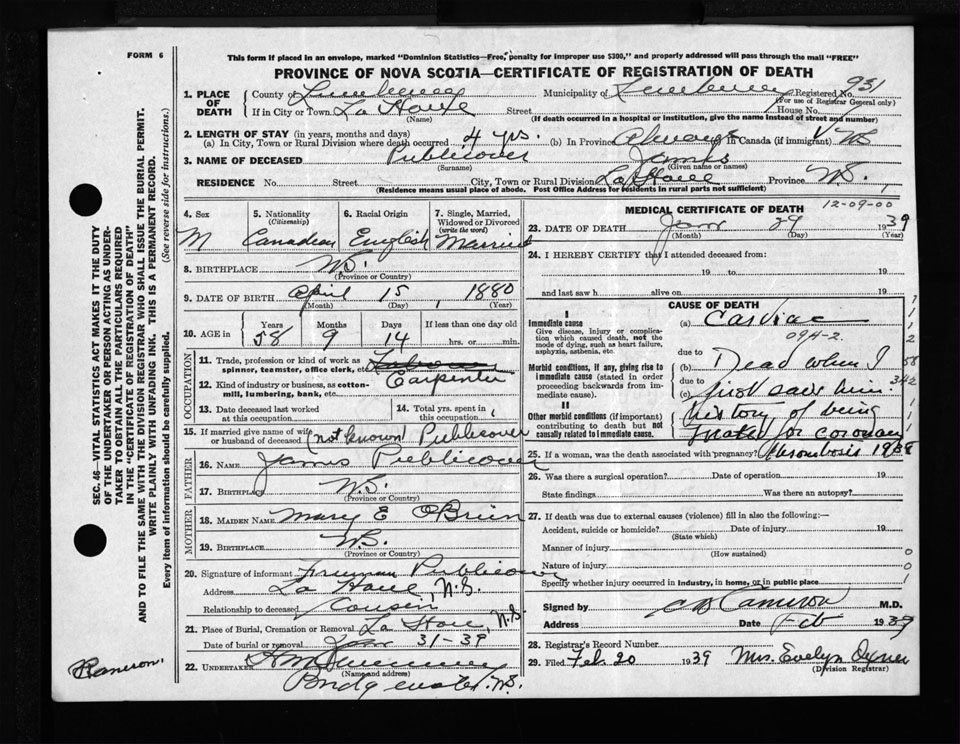 FORM 6
This form if placed in an envelope, marked "Dominion Statistics—Free, penalty for improper use $300," and properly addressed will pass through the mail "FREE"
PROVINCE OF NOVA SCOTIA—CERTIFICATE OF REGISTRATION OF DEATH
1. PLACE OF DEATH County of Lunenburg Municipality of Lunenburg Registered No. 931
(For use of Registrar General only)
If in City or Town La Have Street House No.
(Name) (If death occurred in a hospital or institution, give the name instead of street and number)
2. LENGTH OF STAY (in years, months and days)
(a) In City, Town or Rural Division where death occurred 4 yrs. (b) In Province Always (c) In Canada (if immigrant)
3. NAME OF DECEASED Publicover James
(Surname) (Given name or names)
RESIDENCE No. Street City, Town or Rural Division La Have Province N.S.
(Residence means usual place of abode. Post Office Address for residents in rural parts not sufficient)
4. Sex M
5. Nationality (Citizenship) Canadian
6. Racial Origin English
7. Single, Married, Widowed or Divorced (write the word) Married
8. BIRTHPLACE N.S.
(Province or Country)
9. DATE OF BIRTH April 15, 1880
(Month) (Day) (Year)
10. AGE in Years Months Days If less than one day old
58 9 14 hrs. or min.
OCCUPATION
11. Trade, profession or kind of work as spinner, teamster, office clerk, etc.
Carpenter
12. Kind of industry or business, as cotton-mill, lumbering, bank, etc.
13. Date deceased last worked at this occupation
14. Total yrs. spent in this occupation
15. If married give name of wife or husband of deceased (not known) Publicover
FATHER
16. NAME James Publicover
17. BIRTHPLACE N.S.
(Province or Country)
MOTHER
18. MAIDEN NAME Mary E O'Brien
19. BIRTHPLACE N.S.
(Province or Country)
20. Signature of informant Freeman Publicover
Address La Have, N.S.
Relationship to deceased Cousin
21. Place of Burial, Cremation or Removal La Have, N.S.
Date of burial or removal Jan 31-39
22. UNDERTAKER
(Name and address)
Bridgewater N.S.
MEDICAL CERTIFICATE OF DEATH 12-09-00
23. DATE OF DEATH Jan 29 1939
(Month) (Day) (Year)
24. I HEREBY CERTIFY that I attended deceased from:
19 to 19
and last saw h alive on 19
CAUSE OF DEATH
I
Immediate cause
Give disease, injury or complication which caused death, not the mode of dying, such as heart failure, asphyxia, asthenia, etc.
(a) Cardiac
094-2
Morbid conditions, if any, giving rise to immediate cause (stated in order proceeding backwards from immediate cause).
due to
(b) Dead when I
due to
(c) first saw him
II
Other morbid conditions (if important) contributing to death but not causally related to immediate cause.
history of being
treated for coronary
thrombosis 1938
25. If a woman, was the death associated with pregnancy?
26. Was there a surgical operation? Date of operation 19
State findings Was there an autopsy?
27. If death was due to external causes (violence) fill in also the following:—
Accident, suicide or homicide? Date of injury 19
(State which)
Manner of injury
(How sustained)
Nature of injury
Specify whether injury occurred in industry, in home, or in public place
Signed by C D Cameron M.D.
Address Date Feb 1939
28. Registrar's Record Number
29. Filed Feb. 20 1939 Mrs. Evelyn Oxner
(Division Registrar)
SEC. 46—VITAL STATISTICS ACT MAKES IT THE DUTY
OF THE UNDERTAKER OR PERSON ACTING AS UNDER-
TAKER TO OBTAIN ALL THE PARTICULARS REQUIRED
IN THE "CERTIFICATE OF REGISTRATION OF DEATH"
AND TO FILE THE SAME WITH THE DIVISION REGISTRAR WHO SHALL ISSUE THE BURIAL PERMIT.
WRITE PLAINLY WITH UNFADING INK. THIS IS A PERMANENT RECORD.
Every item of information should be carefully supplied. (See reverse side for instructions.)